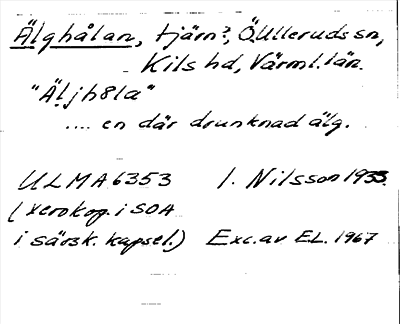 Älghålan, tjärn?, Ö.Ulleruds sn,
Kils hd, Värml. län.
"Äljh8la"
.... en där drunknad älg.
ULMA 6353 I. Nilsson 1933.
(xerokog. i SOA
i särsk. kapsel.) Exc. av E.L. 1967